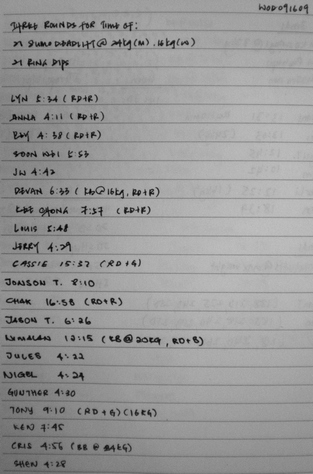 WOD091609
THREE ROUNDS FOR TIME OF:
21 SUMO DEADLIFT @ 24kg(M), 16kg(W)
21 RING DIPS
LYN 5:34 (RD+R)
ANNA 4:11 (RD+R)
4:38 (RD+R)
SOON WEI 5:53
JW 4:42
DEVAN 6:33 (KB@16kg, RD+R)
KEE CHONG 7:57 (RD+R)
LOUIS 5:48
JERRY 4:29
CASSIE 15:37 (RD+G)
JONSON T. 8:10
CHAK 16:58 (RD+R)
JASON T. 6:26
NIMALAN 12:15 (KB@20KG, RD+B)
JULES 4:22
NIGEL 4:24
GUNTHER 4:30
TONY 9:10 (RD+G)(16KG)
KEN 7:45
CRIS 4:56 (BB @ 24KG)
SHEN 4:28